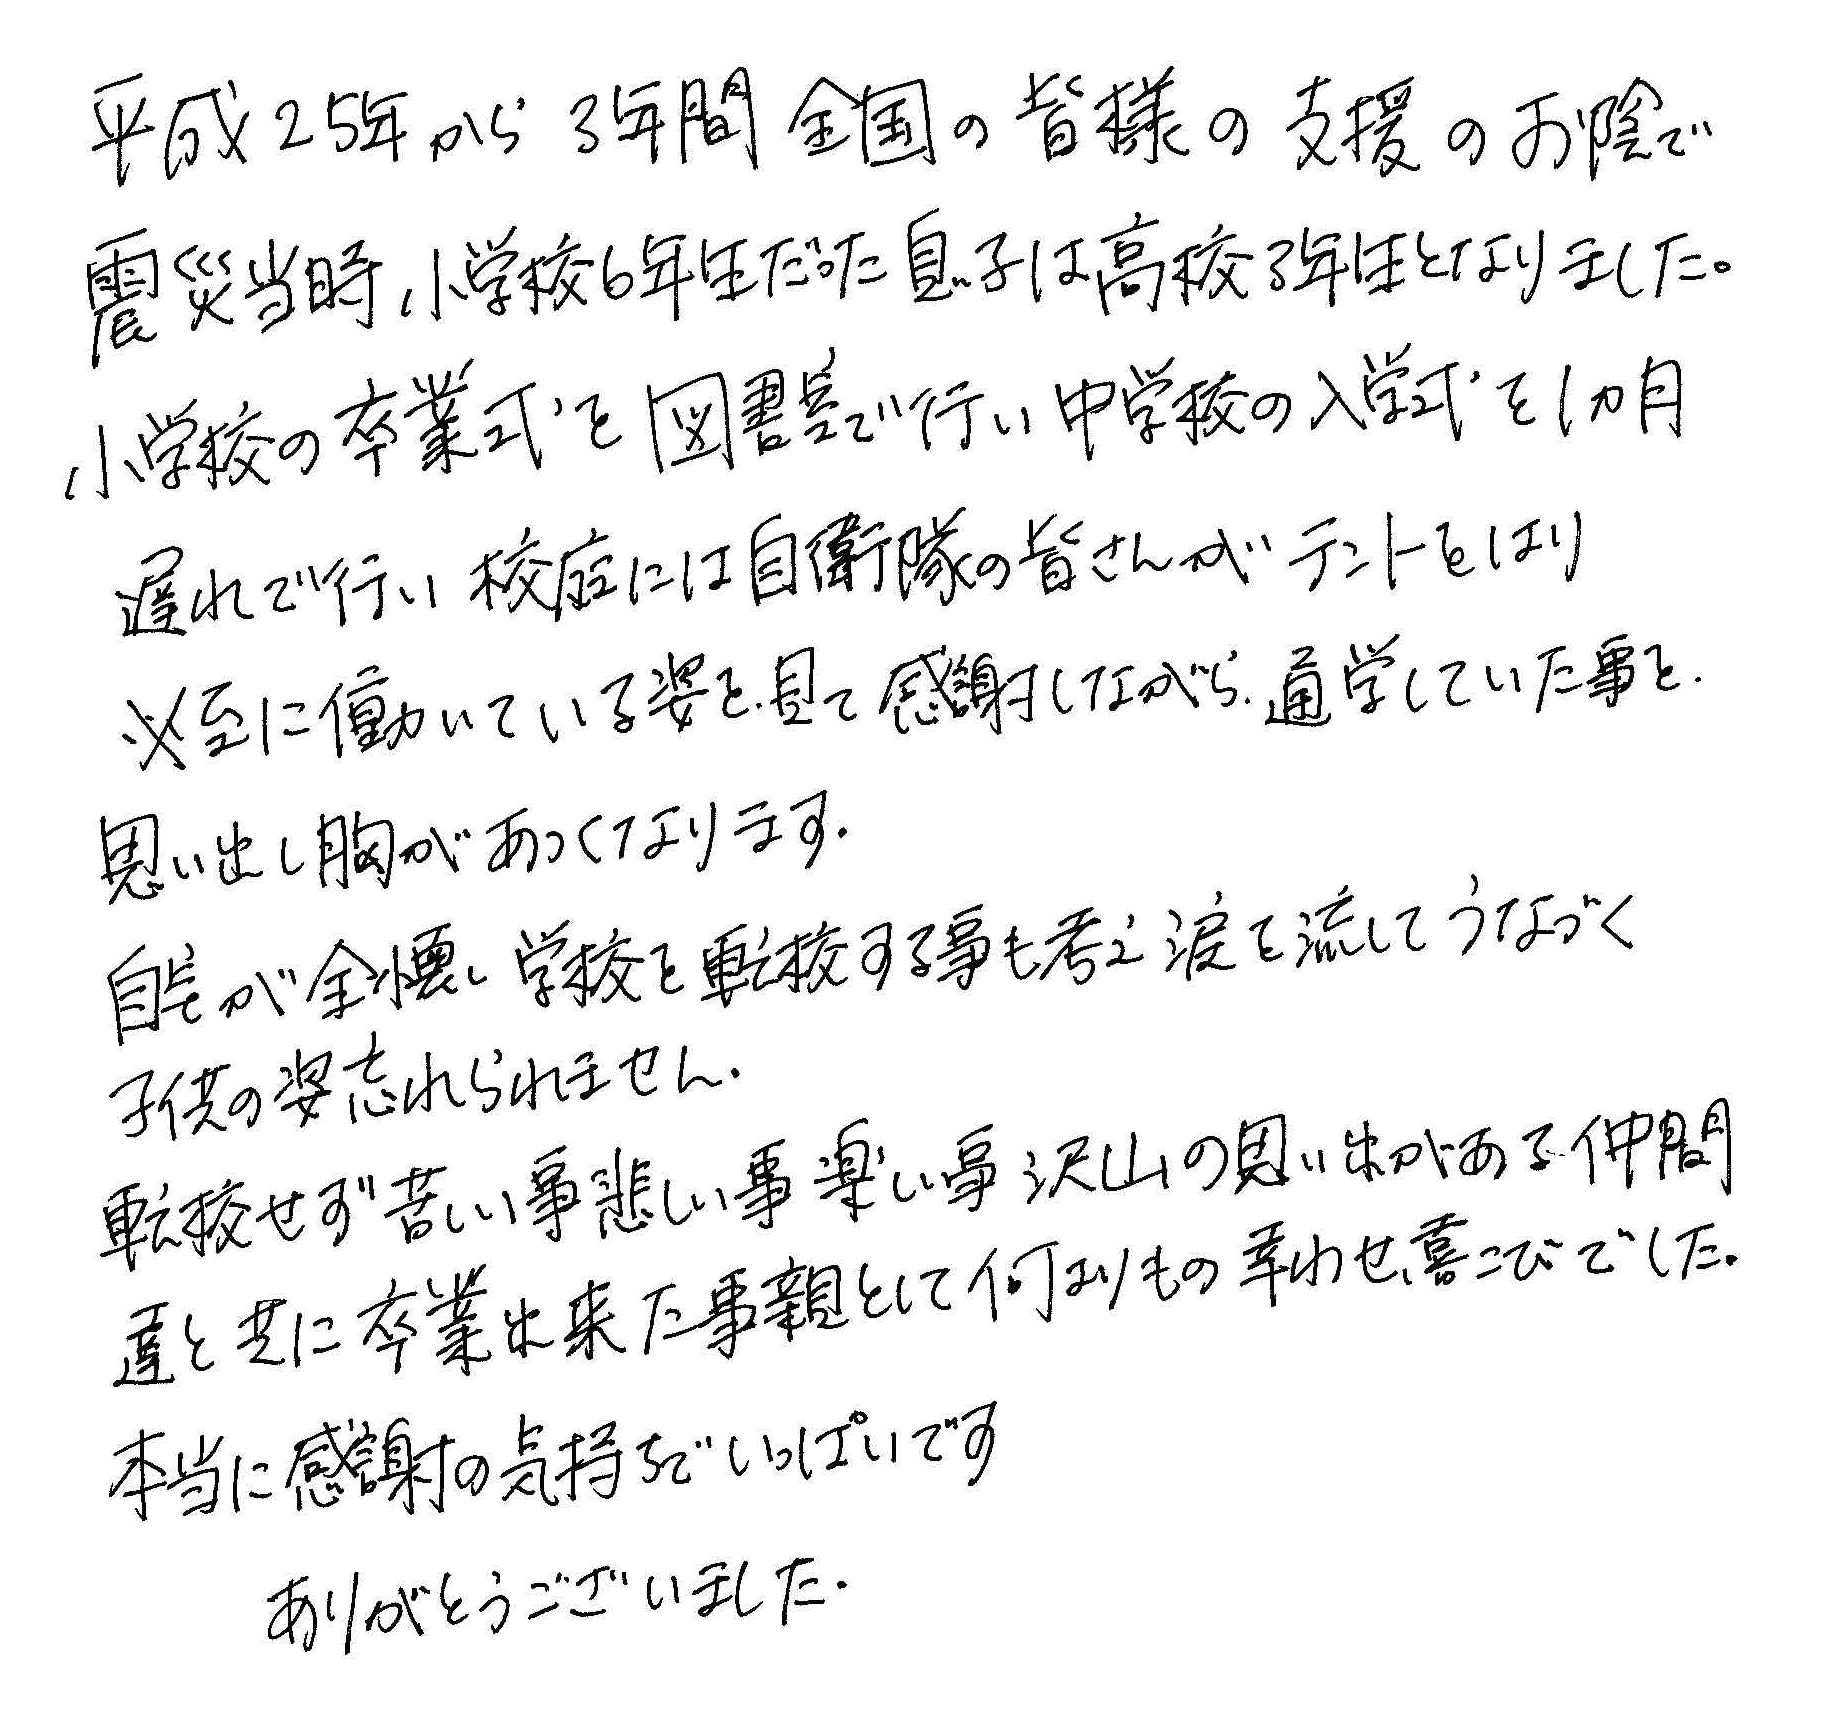 平成25年から3年間全国の皆様の支援のお陰で
震災当時小学校6年生だった息子は高校3年生となりました。
小学校の卒業式を図書室で行い中学校の入学式を1カ月
遅れで行い校庭には自衛隊の皆さんがテントをはり
必至に働いている姿を見て感謝しながら通学していた事を
思い出し胸があつくなります.
自宅が全壊し学校を転校する事も考え涙を流してうなづく
子供の姿忘れられません.
転校せず苦しい事悲しい事楽しい事沢山の思い出がある仲間
達と共に卒業出来た事親として何よりもの幸わせ、喜こびでした。
本当に感謝の気持ちでいっぱいです
ありがとうございました.